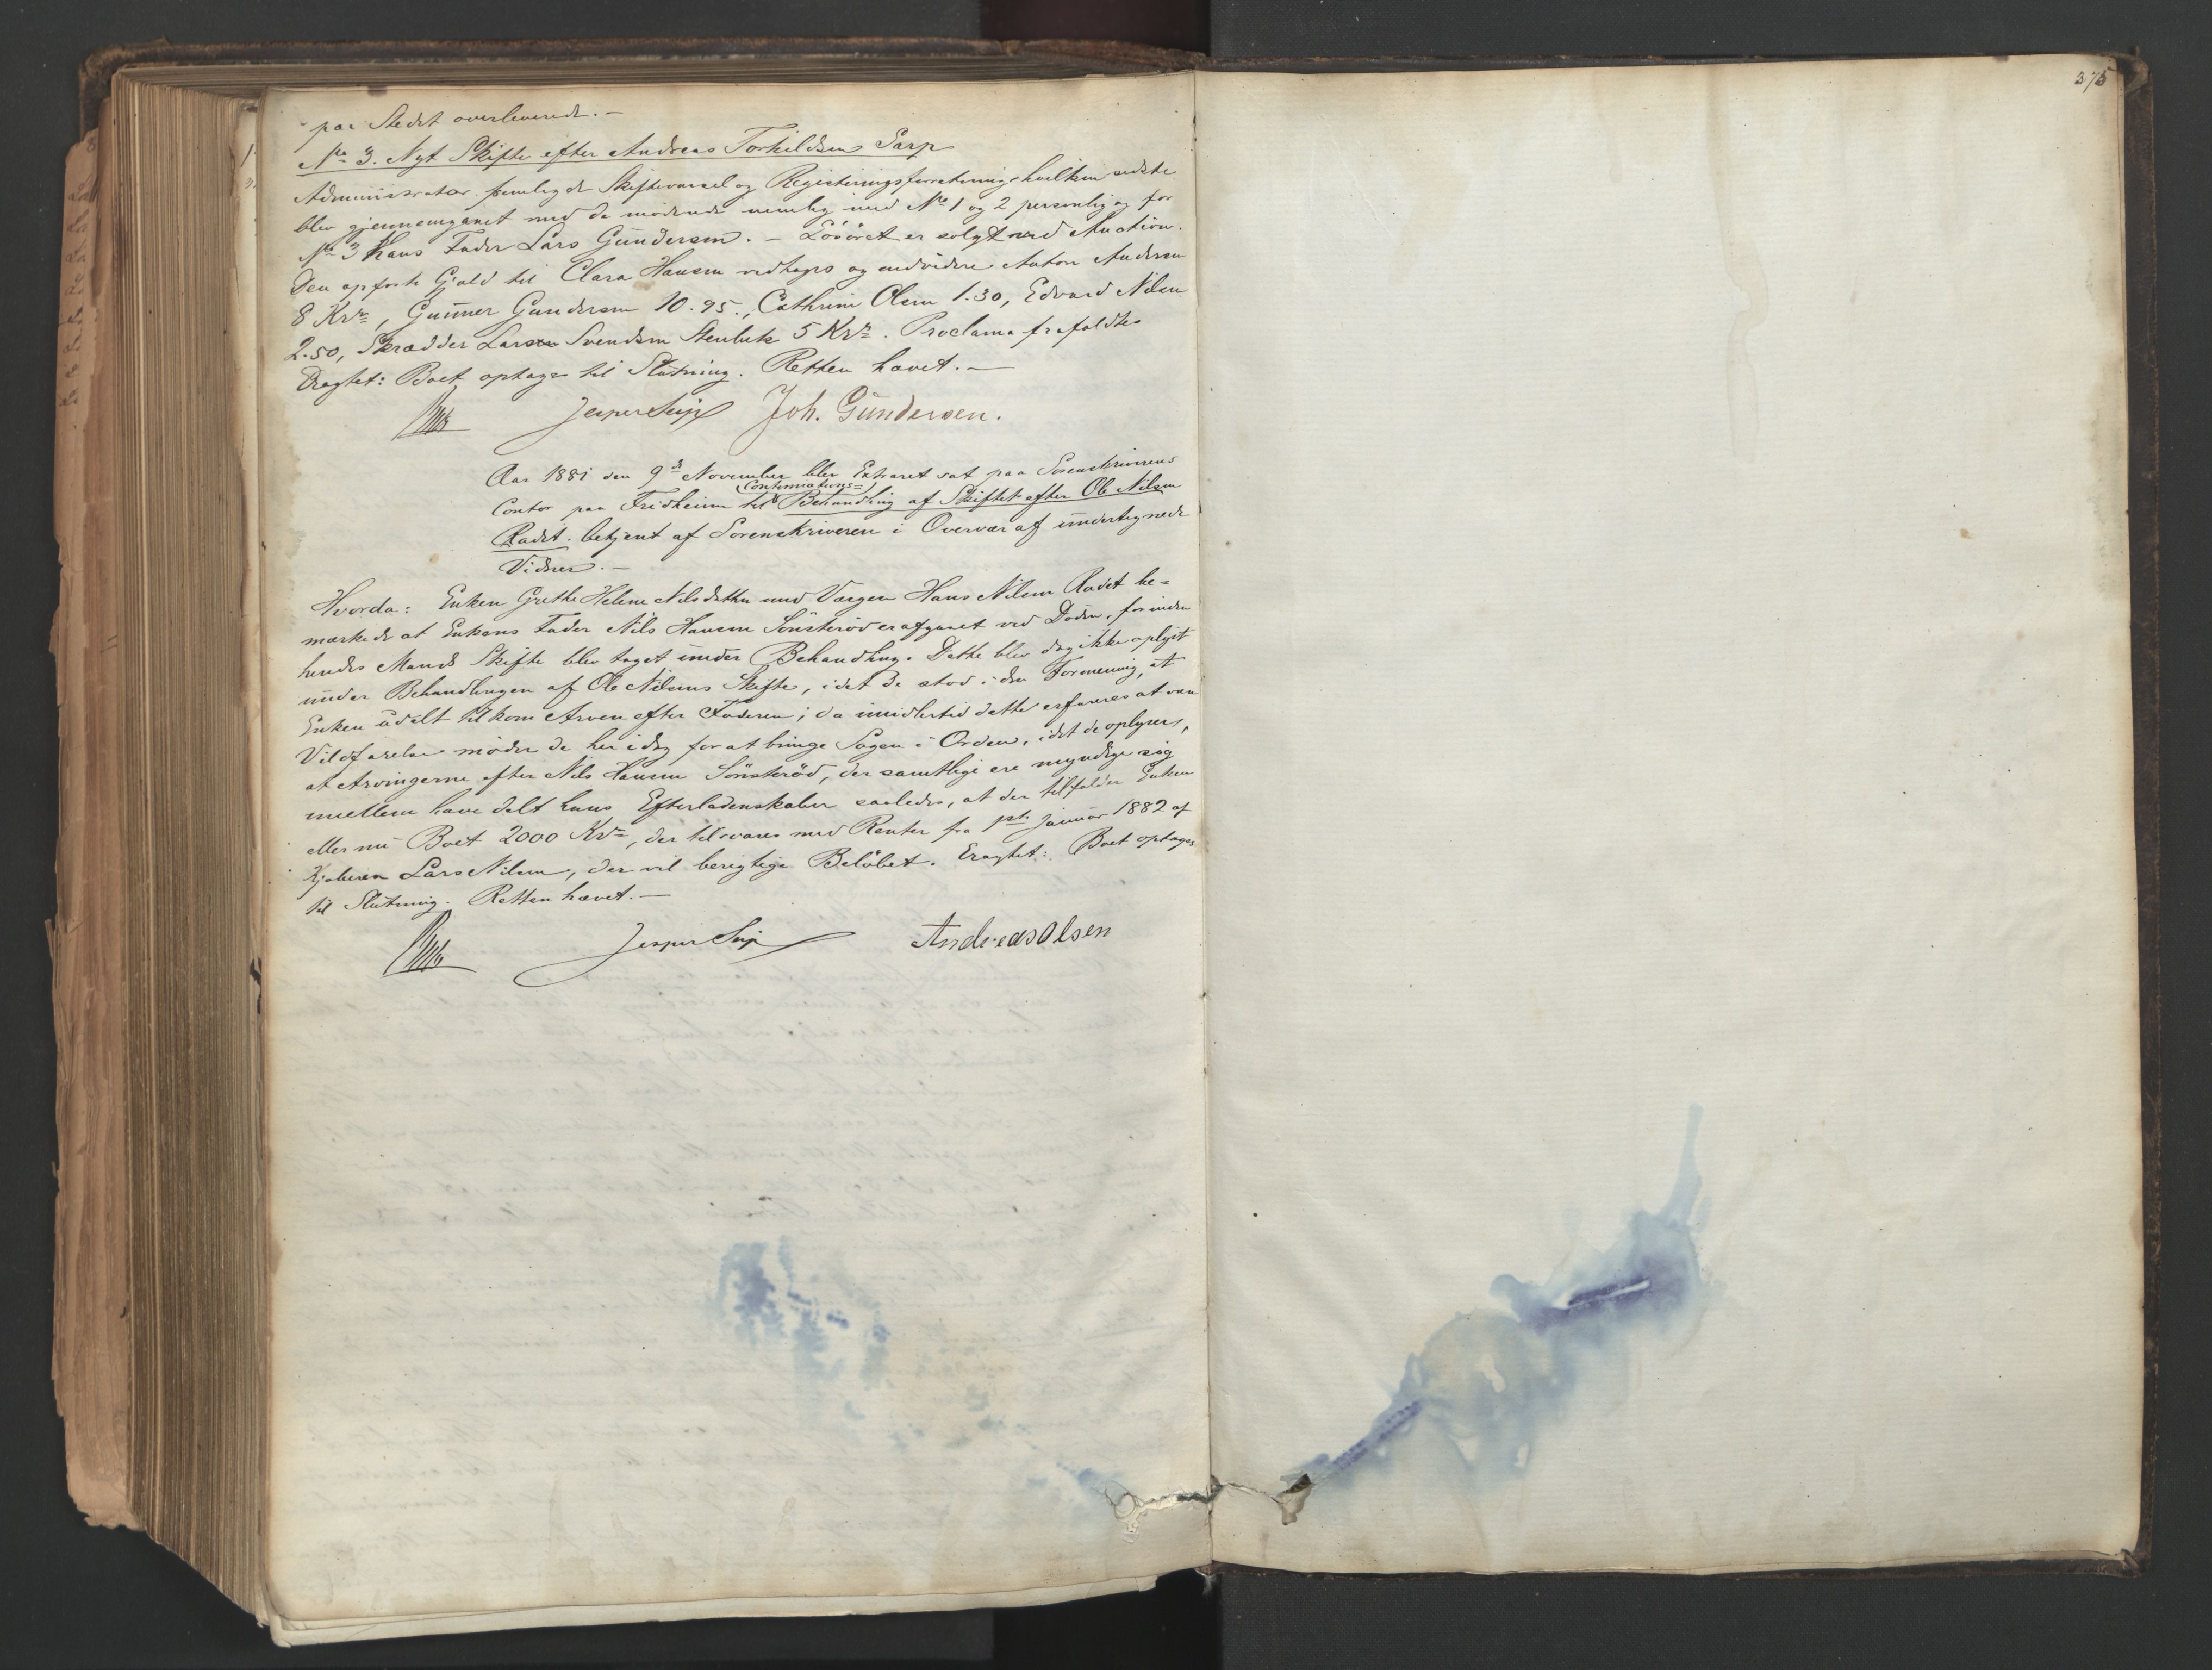 paa Stedet overleverede. –
No 3. Nyt Skifte efter Andreas Torkildsen Sarp
Administrator fremlagde Skiftevarsel og Registreringsforretning hvilken sidste
blev gjennemgaaet med de mødende nemlig med No 1 og 2 personlig og for
No 3 hans Fader Lars Gundersen. – Løsøret er solgt ved Auction.
Den opførte Gjæld til Clara Hansen vedtages og endvidere Anton Andersen
8 Kr, Gunner Gundersen 10.95., Cathrine Olsen 1.30, Edvard Nilsen
2.50, Skrædder Lars Svendsen Stenbæk 5 Kr. Proclama frafaldtes
Eragtet: Boet optages til Slutning. Retten hævet. –
Jesper Seip Joh. Gundersen.
Aar 1881 den 9de November blev Extraret sat paa Sorenskriverens
Contor paa Fridheim til Continuations=Behandling af Skiftet efter Ole Nilsen
Rødet. betjent af Sorenskriveren i Overvær af undertegnede
Vidner. –
Hvorda: Enken Grethe Helene Nilsdatter med Værgen Hans Nilsen Rødet be=
mærkede at Enkens Fader Nils Hansen Sønsterød er afgaaet ved Døden, forinden
hendes Mands Skifte blev taget under Behandling. Dette blev dog ikke oplyst
under Behandlingen af Ole Nilsens Skifte, idet de stod i den Formening, at
Enken udelt tilkom Arven efter Faderen; da imidlertid dette erfares at være
Vildfarelse møder de her idag for at bringe Sagen i Orden, idet de oplyser,
at Arvingerne efter Nils Hansen Sønsterød, der samtlige ere myndige sig
imellem have delt hans Efterladenskaber saaledes, at der tilfalder Enken
eller nu Boet 2000 Kr, der tilsvares med Renter fra 1ste Januar 1882 af
Kjøberen Lars Nilsen, der vil berigtige Beløbet. Eragtet: Boet optages
til Slutning. Retten hævet. –
Jesper Seip Andreas Olsen
375